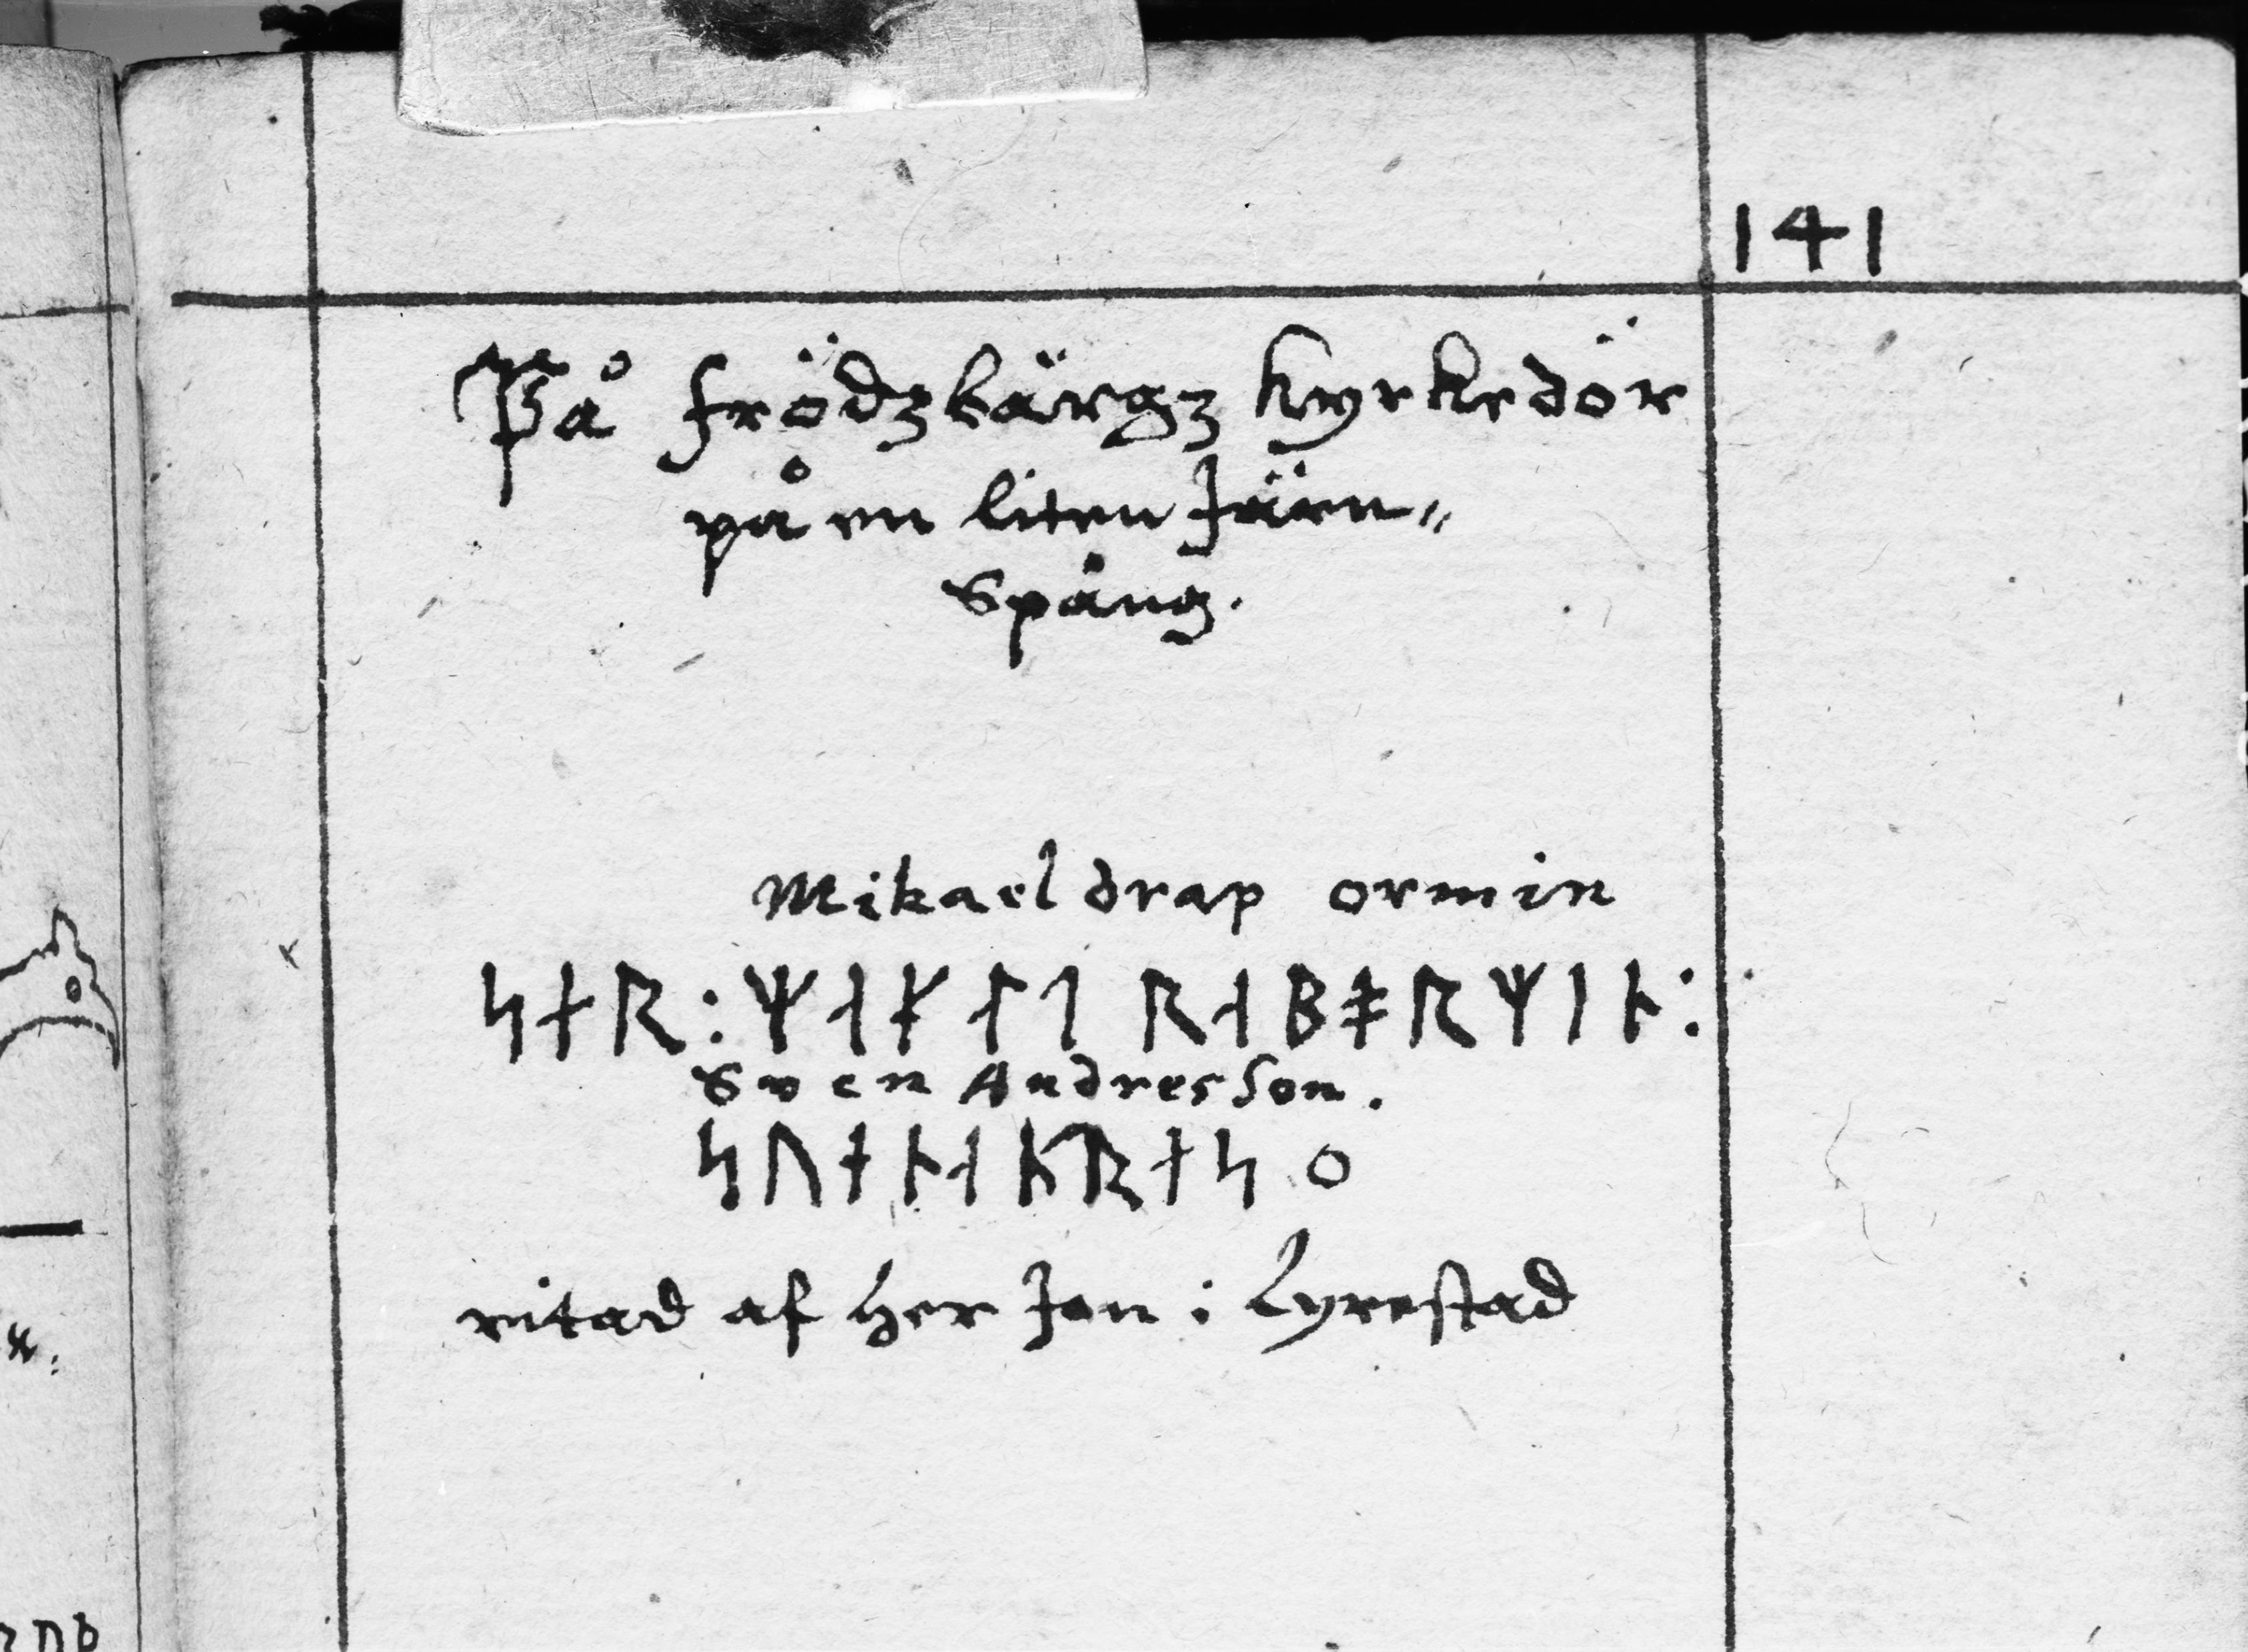 141
På frödzbärgz kyrkedör
på en liten Järn〃
Spång.
Mikael drap ormin
ᛋᛅᚱ:ᛘᛆᚴᛚᛐ ᚱᛆᛒᚯᚱᛘᛁᚿ:
Swen Andresson.
ᛋᚢᚾᚿᛆᚴᚱᚾᛋ ᴑ
ritad af her Jon i Lyrestad